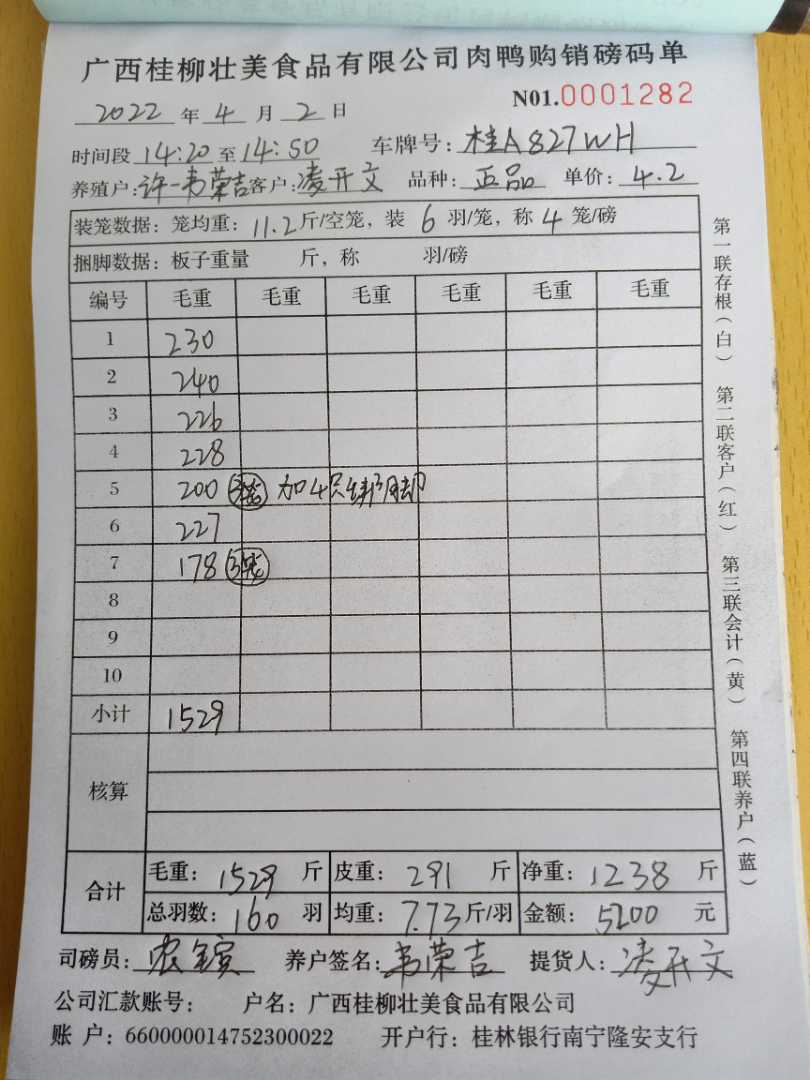 广西桂柳壮美食品有限公司肉鸭购销磅码单
N01.0001282
2022年4月2日
时间段14:20至14:50 车牌号:桂A827WH
养殖户:许一韦荣吉客户:凌开文 品种:正品 单价:4.2
装笼数据:笼均重:11.2斤/空笼,装6羽/笼,称4笼/磅
捆脚数据:板子重量 斤,称 羽/磅
编号 毛重 毛重 毛重 毛重 毛重 毛重
1 230
2 240
3 226
4 228
5 200 加4只绑脚
6 227
7 178
8
9
10
小计 1529
核算
合计 毛重:1529斤 皮重:291斤 净重:1238斤
总羽数:160羽 均重:7.73斤/羽 金额:5200元
司磅员: 养户签名:韦荣吉 提货人:凌开文
公司汇款账号: 户名:广西桂柳壮美食品有限公司
账户:660000014752300022 开户行:桂林银行南宁隆安支行
第一联存根(白) 第二联客户(红) 第三联会计(黄) 第四联养户(蓝)